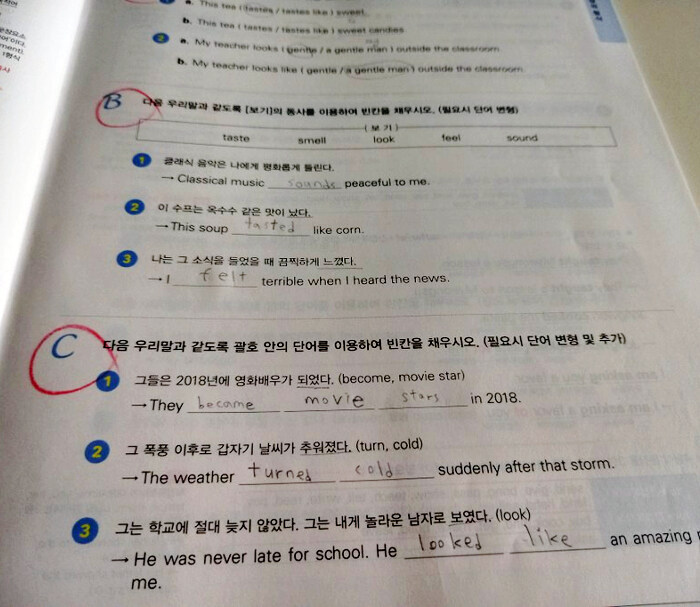 a. This tea ( tastes / tastes like ) sweet.
b. This tea ( tastes / tastes like ) sweet candies.
2 a. My teacher looks ( gentle / a gentle man ) outside the classroom.
b. My teacher looks like ( gentle / a gentle man ) outside the classroom.
B 다음 우리말과 같도록 [보기]의 동사를 이용하여 빈칸을 채우시오. (필요시 단어 변형)
( 보 기 )
taste smell look feel sound
1 클래식 음악은 나에게 평화롭게 들린다.
→ Classical music sounds peaceful to me.
2 이 수프는 옥수수 같은 맛이 났다.
→ This soup tasted like corn.
3 나는 그 소식을 들었을 때 끔찍하게 느꼈다.
→ I felt terrible when I heard the news.
C 다음 우리말과 같도록 괄호 안의 단어를 이용하여 빈칸을 채우시오. (필요시 단어 변형 및 추가)
1 그들은 2018년에 영화배우가 되었다. (become, movie star)
→ They became movie stars in 2018.
2 그 폭풍 이후로 갑자기 날씨가 추워졌다. (turn, cold)
→ The weather turned cold suddenly after that storm.
3 그는 학교에 절대 늦지 않았다. 그는 내게 놀라운 남자로 보였다. (look)
→ He was never late for school. He looked like an amazing
me.